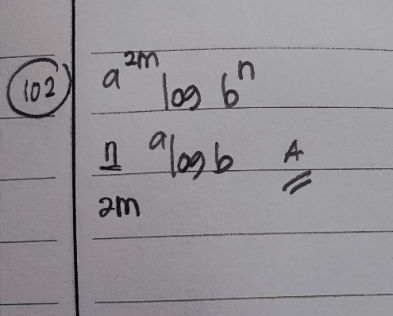 102 a^2m log b^n
n/2m ^a log b A